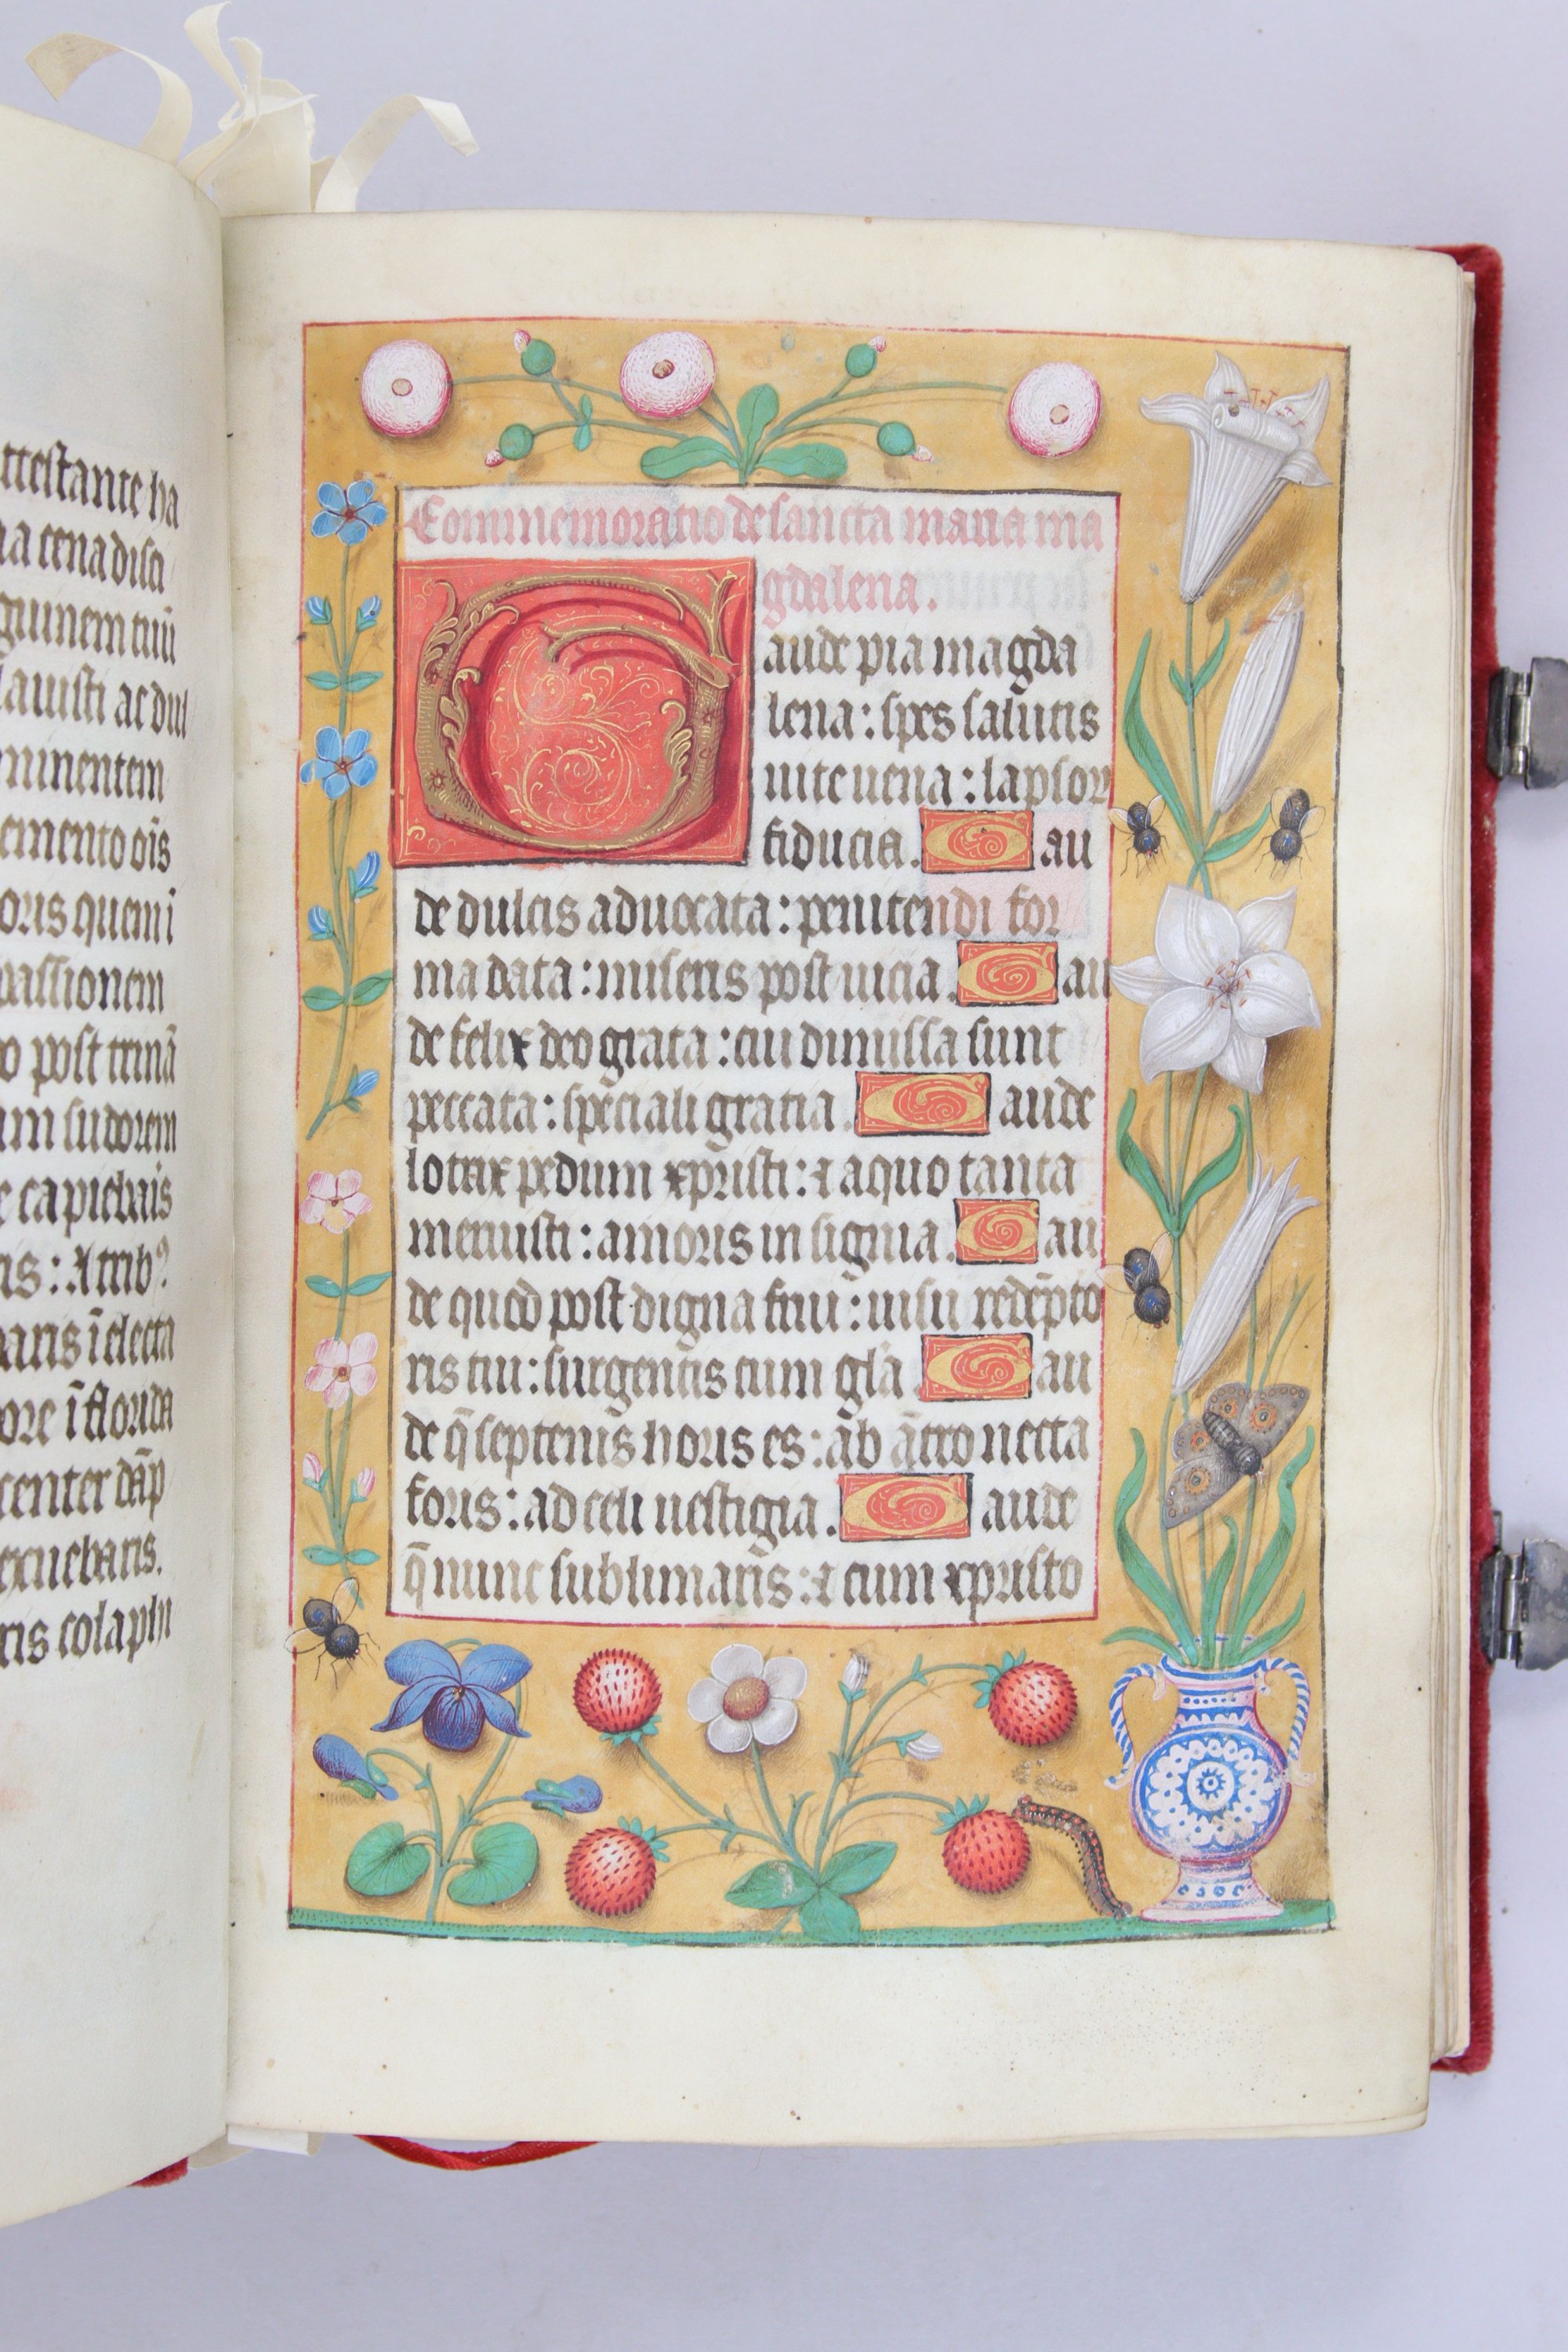 ttestante ha
na cena disci
guinem tuū
lauisti ac dul
minentem
emento oīs
oris quem ī
passionem
o post trinā
um sudorem
e capiebais
ris: A trib9
baris ī electa
ore ī florida
center dāp
exuebaris.
ris colaphi
Commemoratio de sancta maria ma
gdalena.
Gaude pia magda
lena: spes salutis
vite vena: lapsoꝝ
fiducia. Gau
de dulcis aduocata: penitendi for
ma data: miseris post uicia. Gau
de felix deo grata: cui dimissa sunt
peccata: speciali gratia. Gaude
lotrix pedum xpristi: ⁊ a quo tanta
meruisti: amoris insignia. Gau
de quod post digna frui: uisu redēpto
ris tui: surgentis cum glā Gau
de q̄ septenis horis es: ab ātro uecta
foris: ad celi uestigia. Gaude
q̄ nunc sublimaris: ⁊ cum xpristo